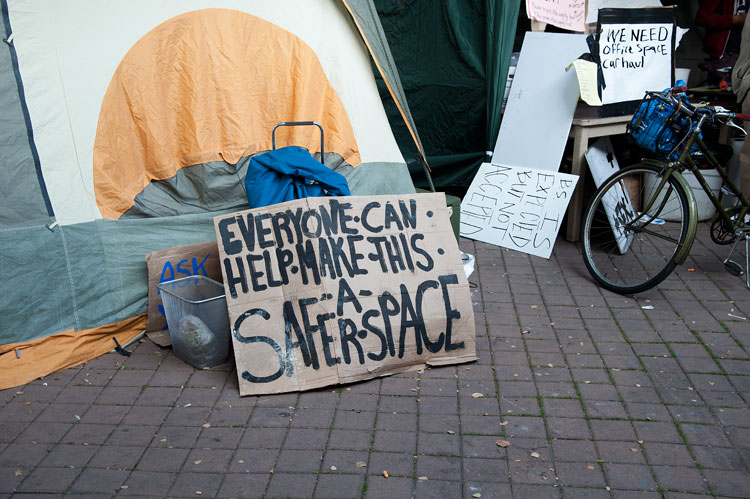 EVERYONE·CAN·
HELP·MAKE·THIS·
-A-
SAFER·SPACE
ASK
WE NEED
OFFice SPACE
car haul
BS IS
EXPECTED
BUT NOT
ACCEPTED